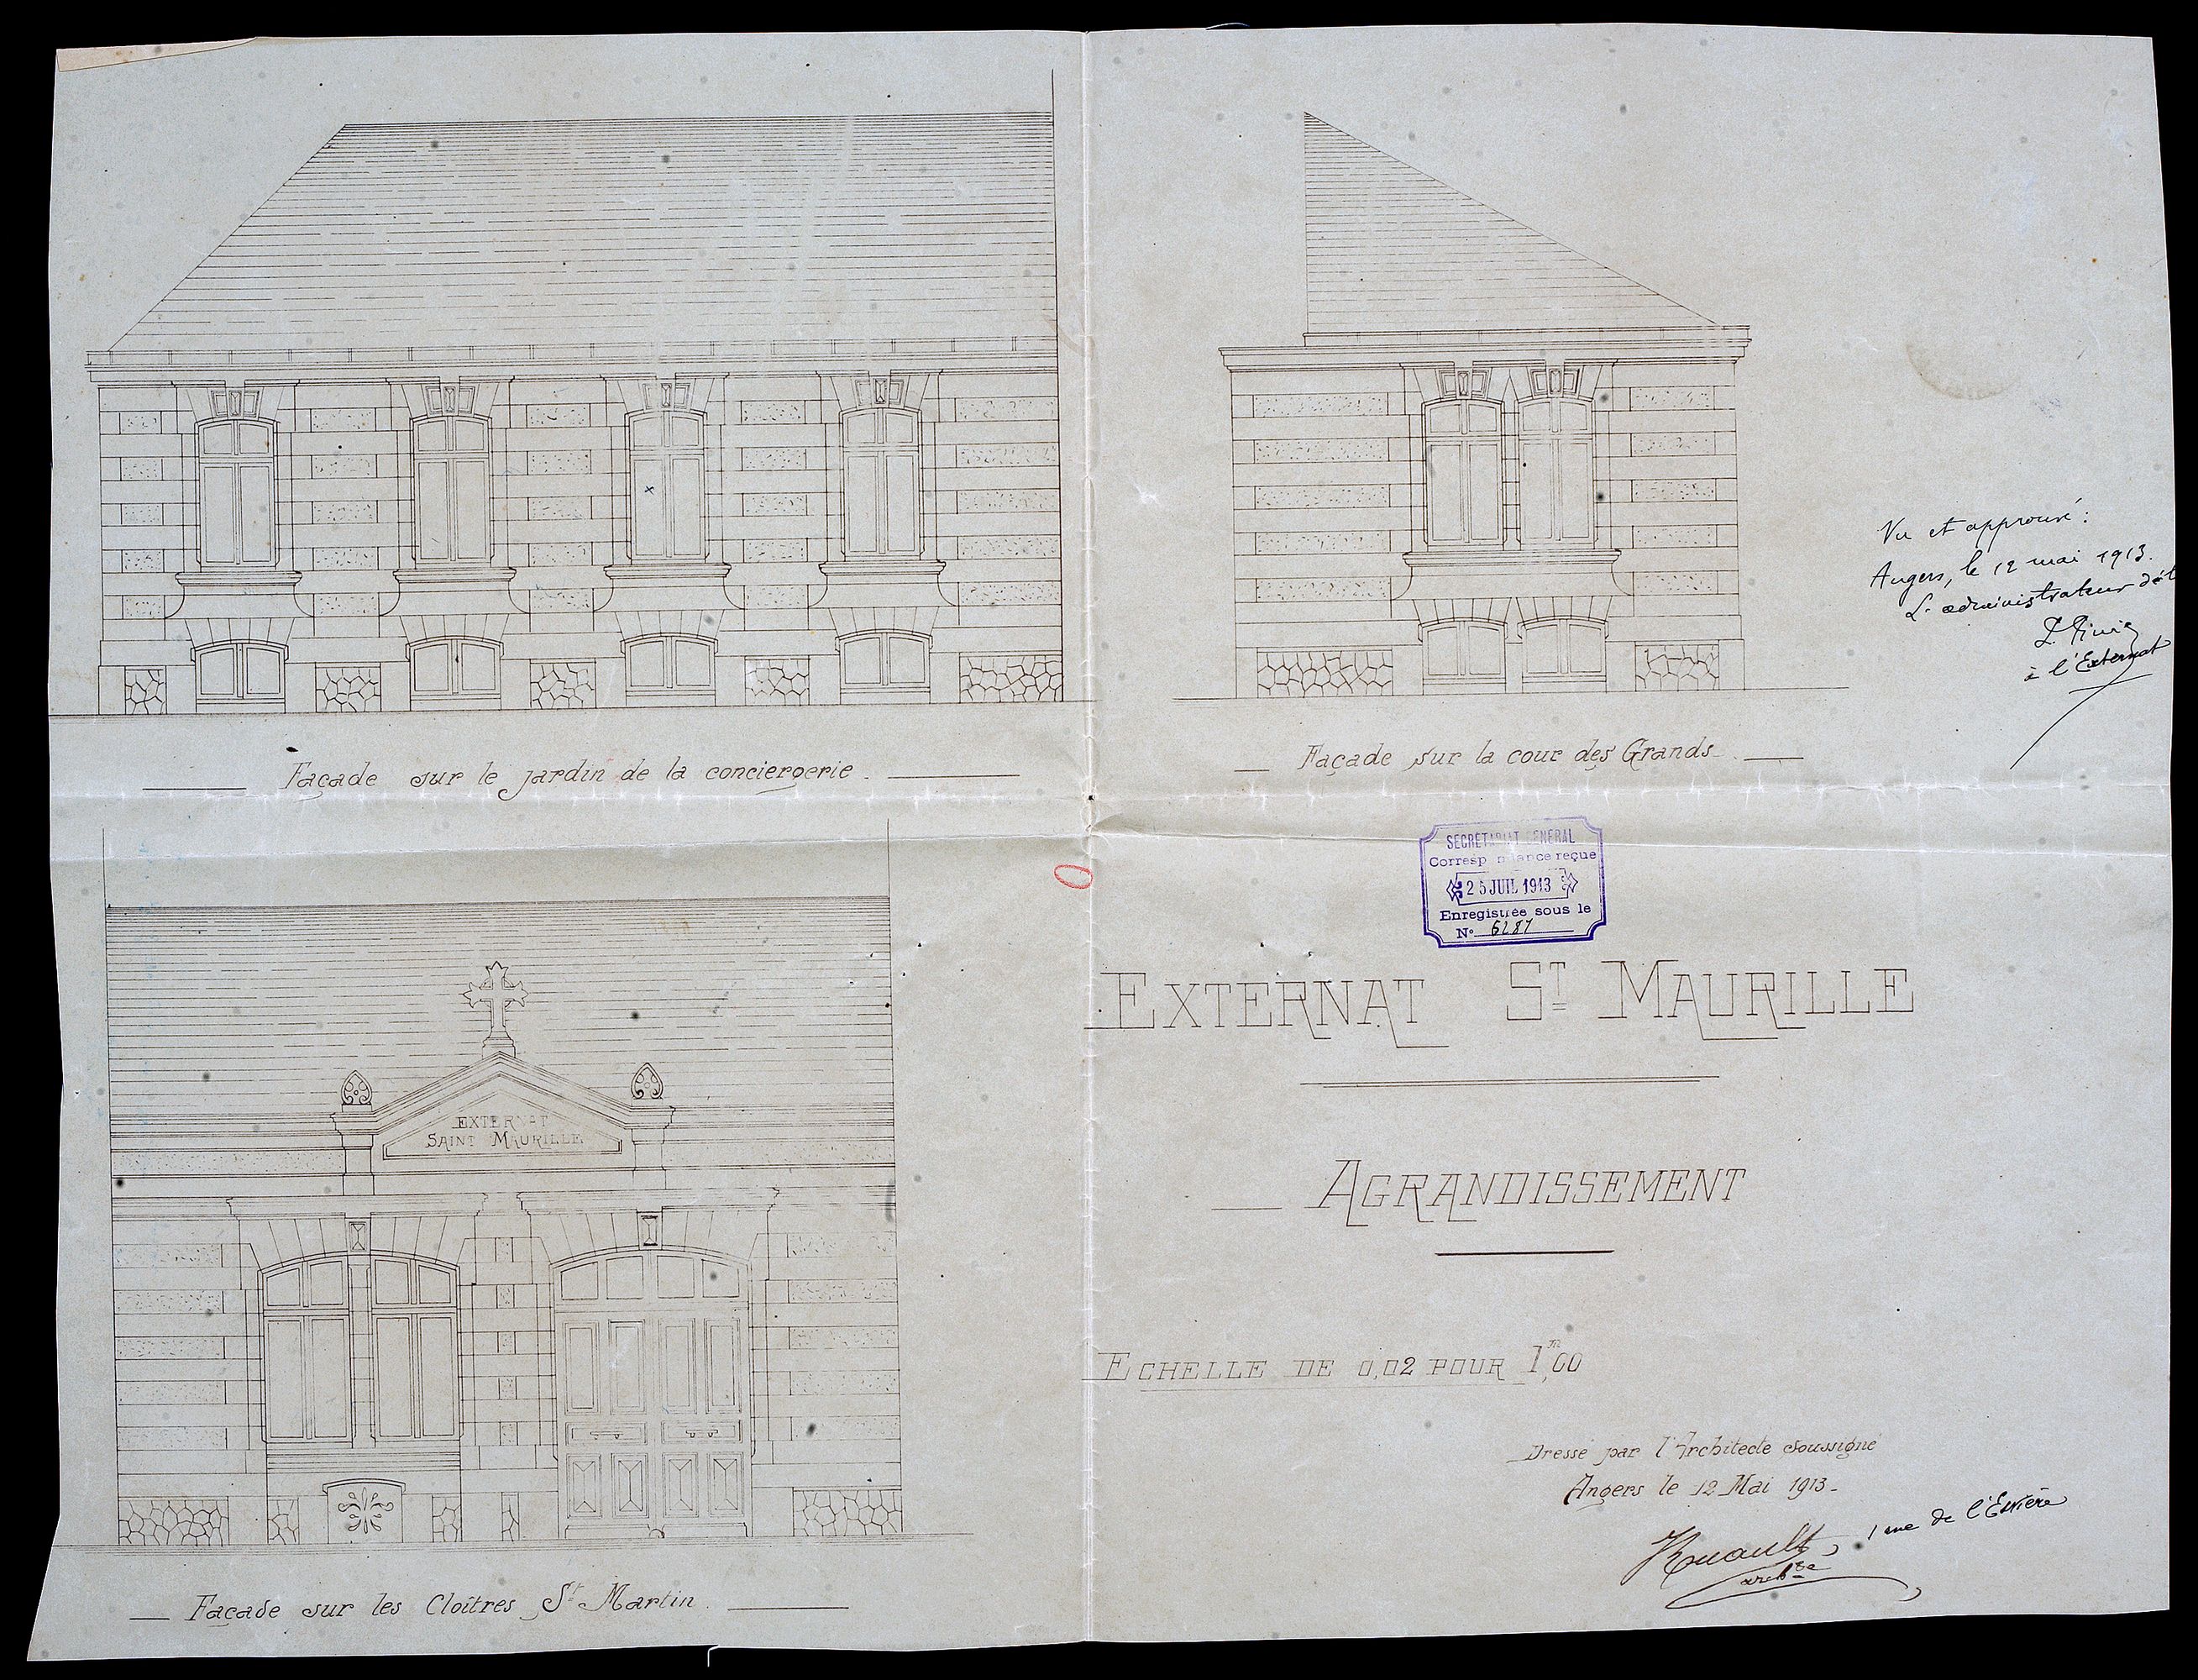 Façade sur le jardin de la conciergerie.
Façade sur la cour des Grands.
Vu et approuvé :
Angers, le 12 mai 1913.
L'administrateur dél
à l'Externat
SECRETARIAT GENERAL
Correspondance reçue
25 JUIL 1913
Enregistrée sous le
N° 6287
EXTERNAT ST MAURILLE
AGRANDISSEMENT
ECHELLE DE 0,02 POUR 1m,00
Dressé par l'Architecte soussigné
Angers le 12 Mai 1913 -
Ruault, 1 rue de l'Esvière
archte
EXTERNAT
SAINT MAURILLE
Façade sur les Cloîtres St Martin.